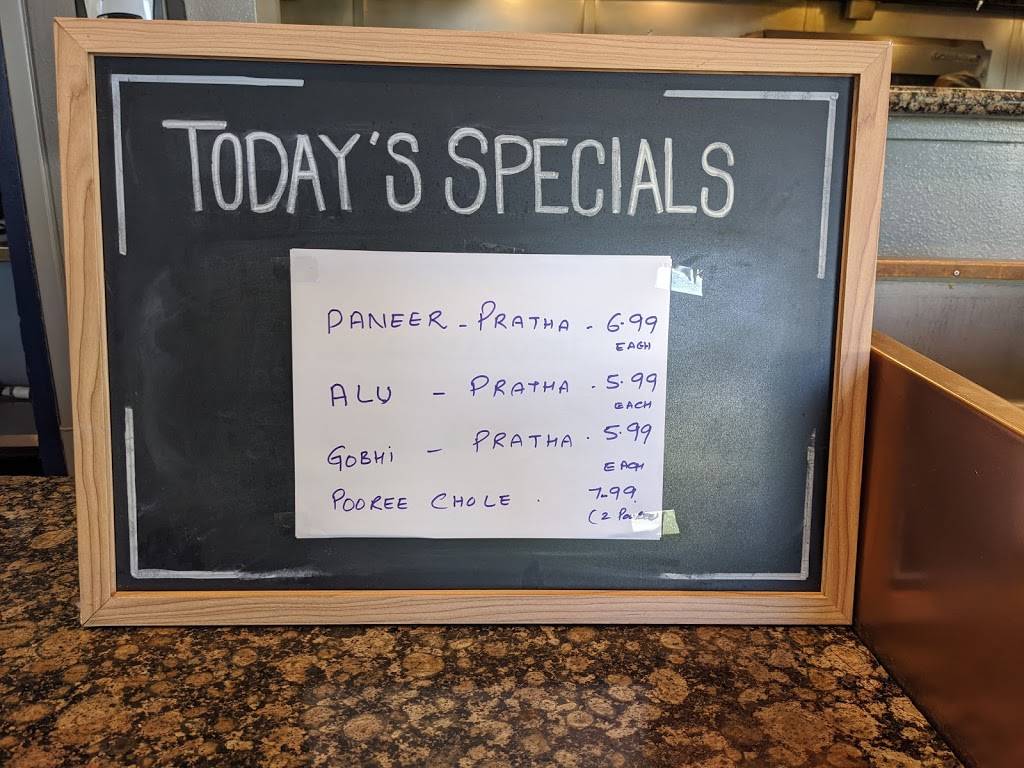 TODAY'S SPECIALS
PANEER - PRATHA - 6.99
EACH
ALU - PRATHA - 5.99
EACH
GOBHI - PRATHA - 5.99
EACH
POOREE CHOLE - 7.99
(2